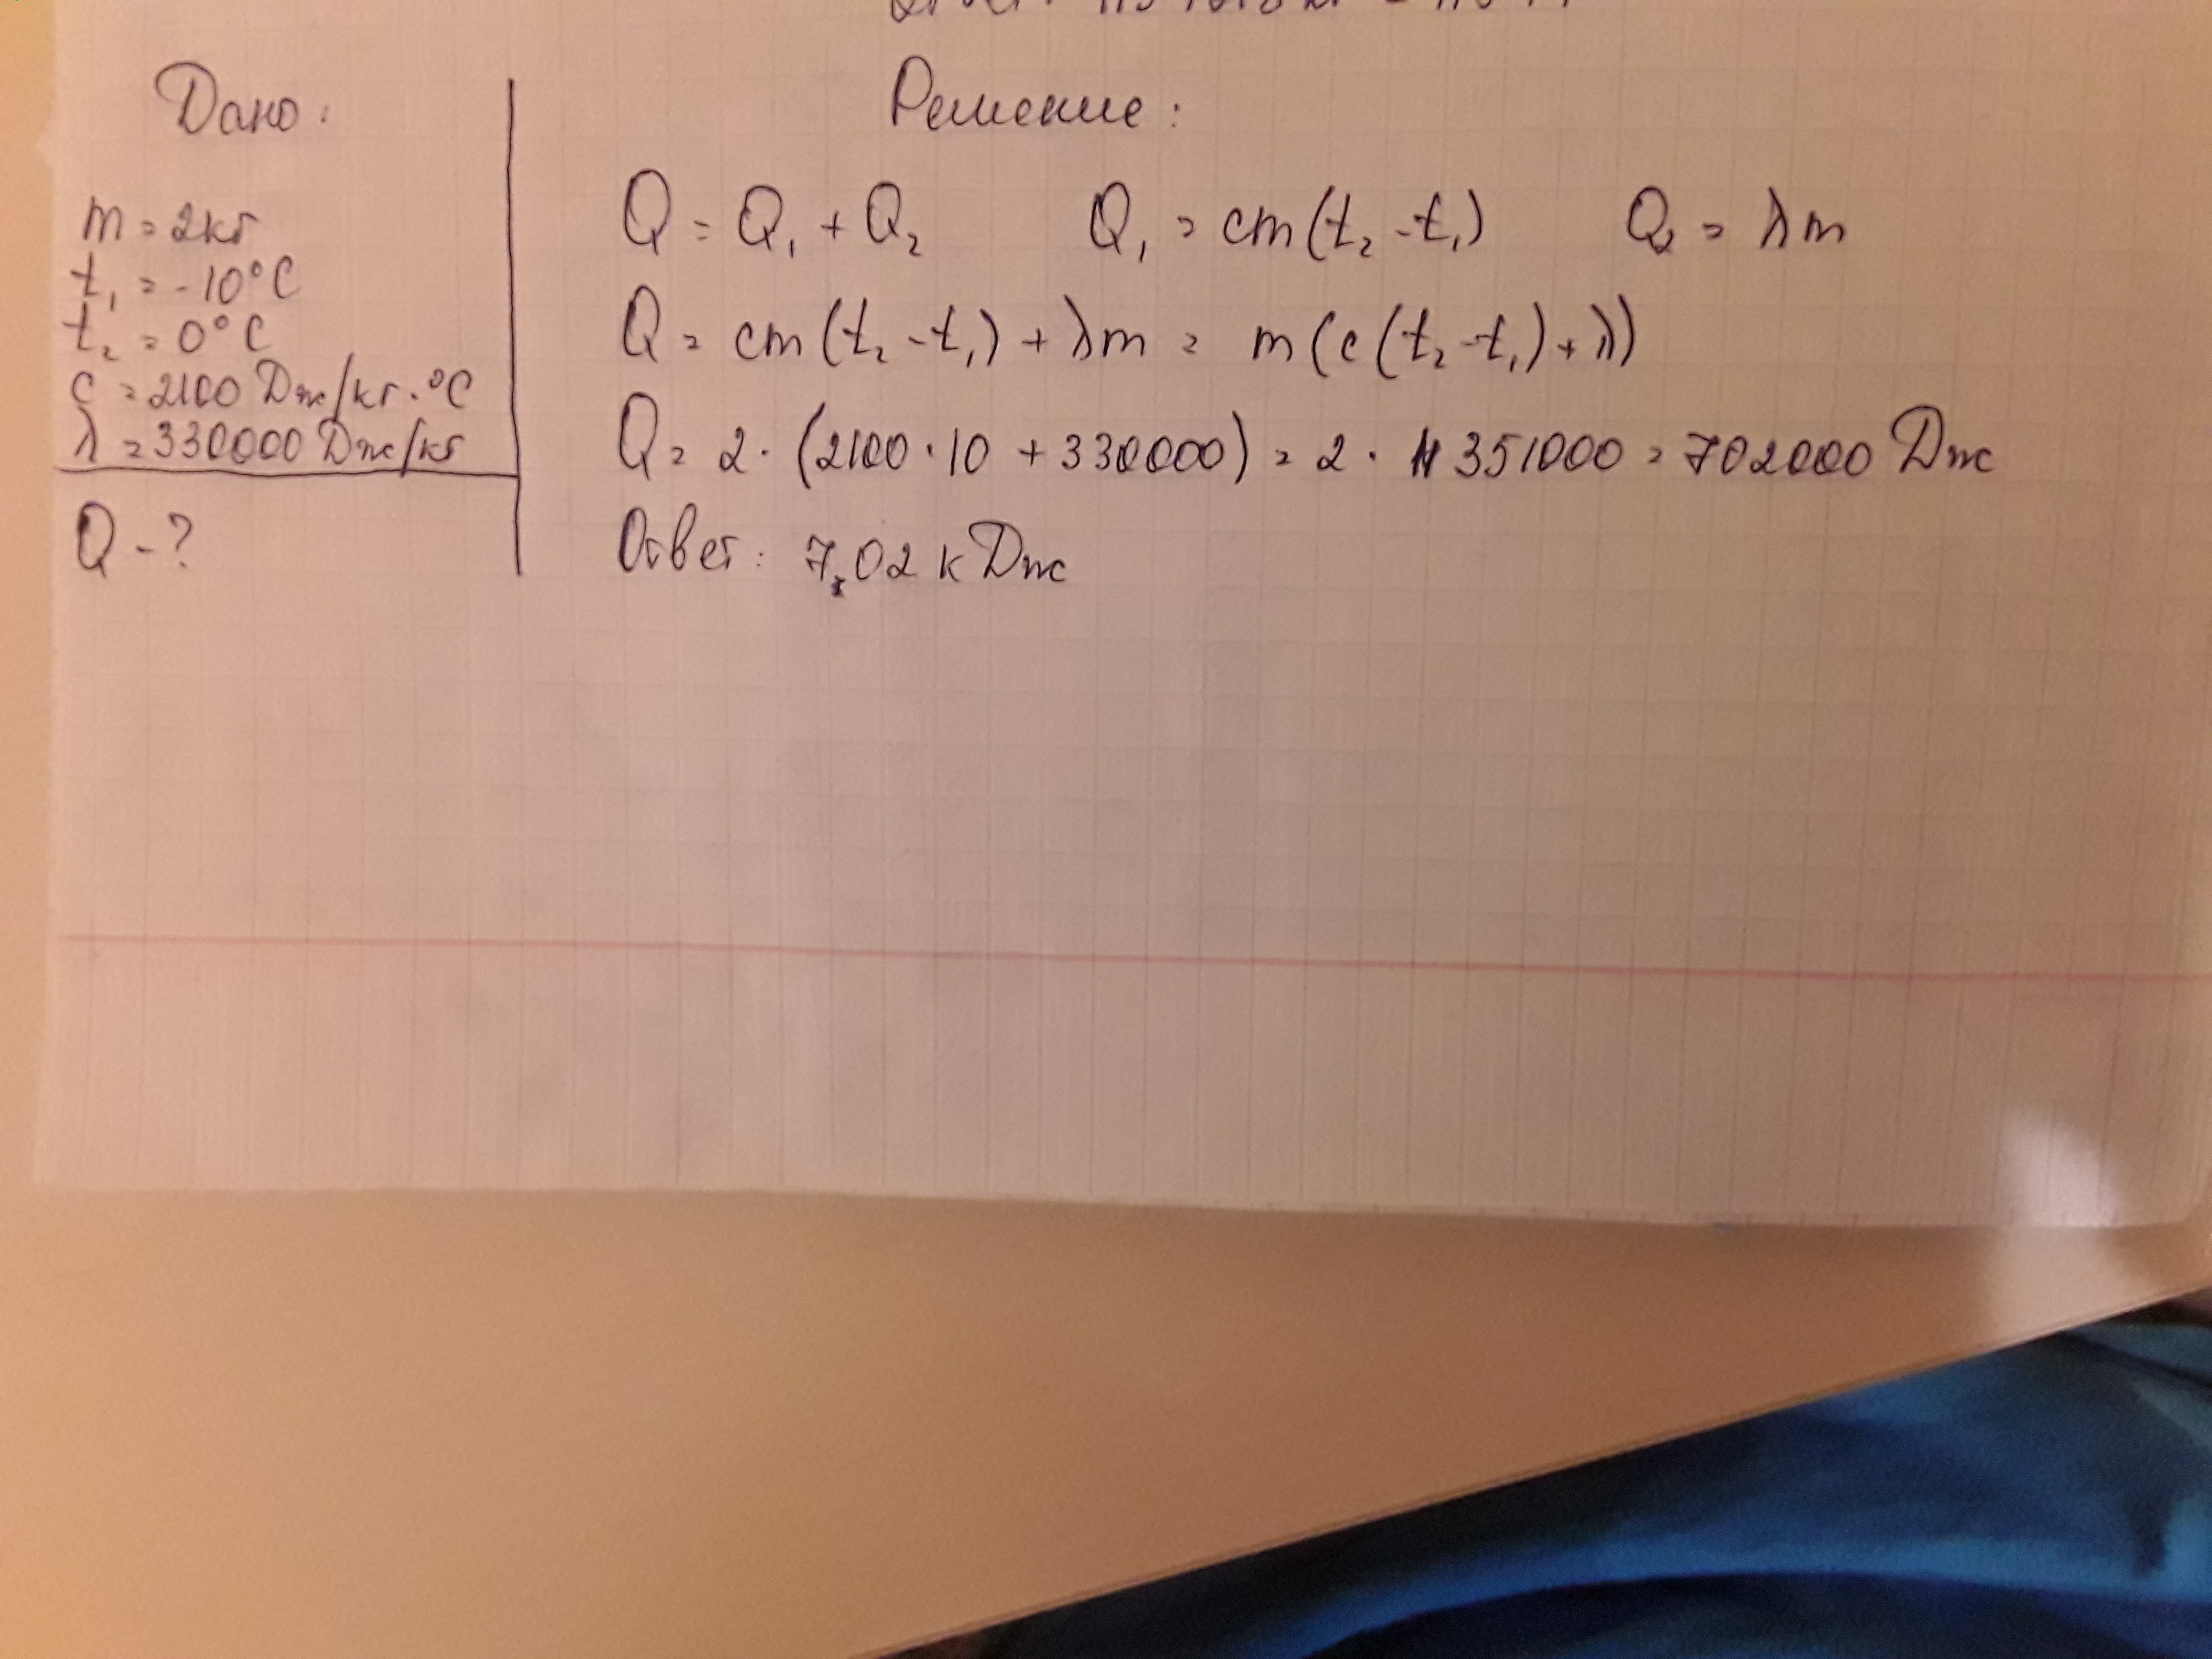 Дано:
m = 2кг
t₁ = -10°C
t₂ = 0°C
c = 2100 Дж/кг·°C
λ = 330000 Дж/кг
Q - ?
Решение:
Q = Q₁ + Q₂ Q₁ = cm(t₂ - t₁) Q₂ = λm
Q = cm(t₂ - t₁) + λm = m(c(t₂ - t₁) + λ)
Q = 2 · (2100 · 10 + 330000) = 2 · 351000 = 702000 Дж
Ответ: 7,02 кДж